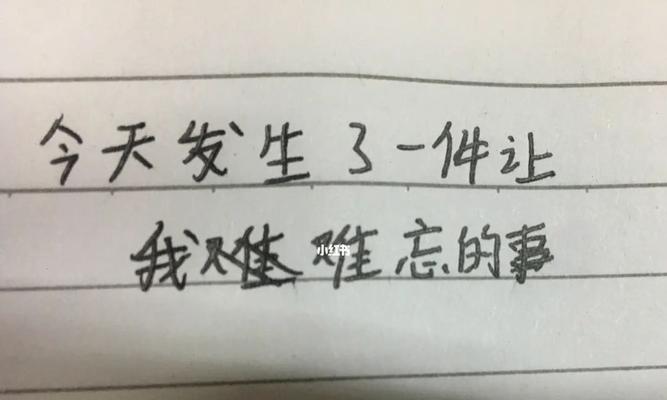 今天发生了一件让
我难难忘的事
小红书